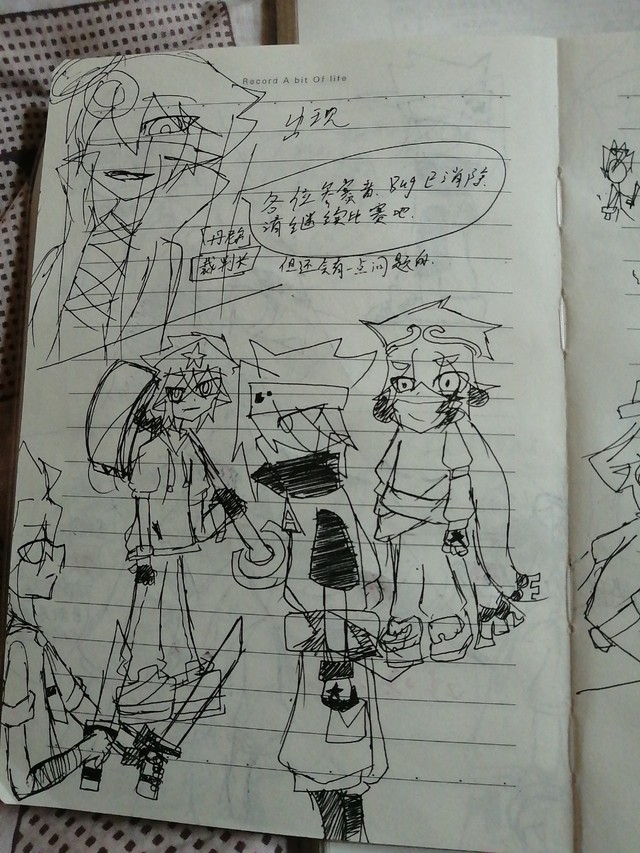 Record A bit Of life
出现
各位参赛者.Bug已消除.
请继续比赛吧.
裁判长
但还会有一点问题的.